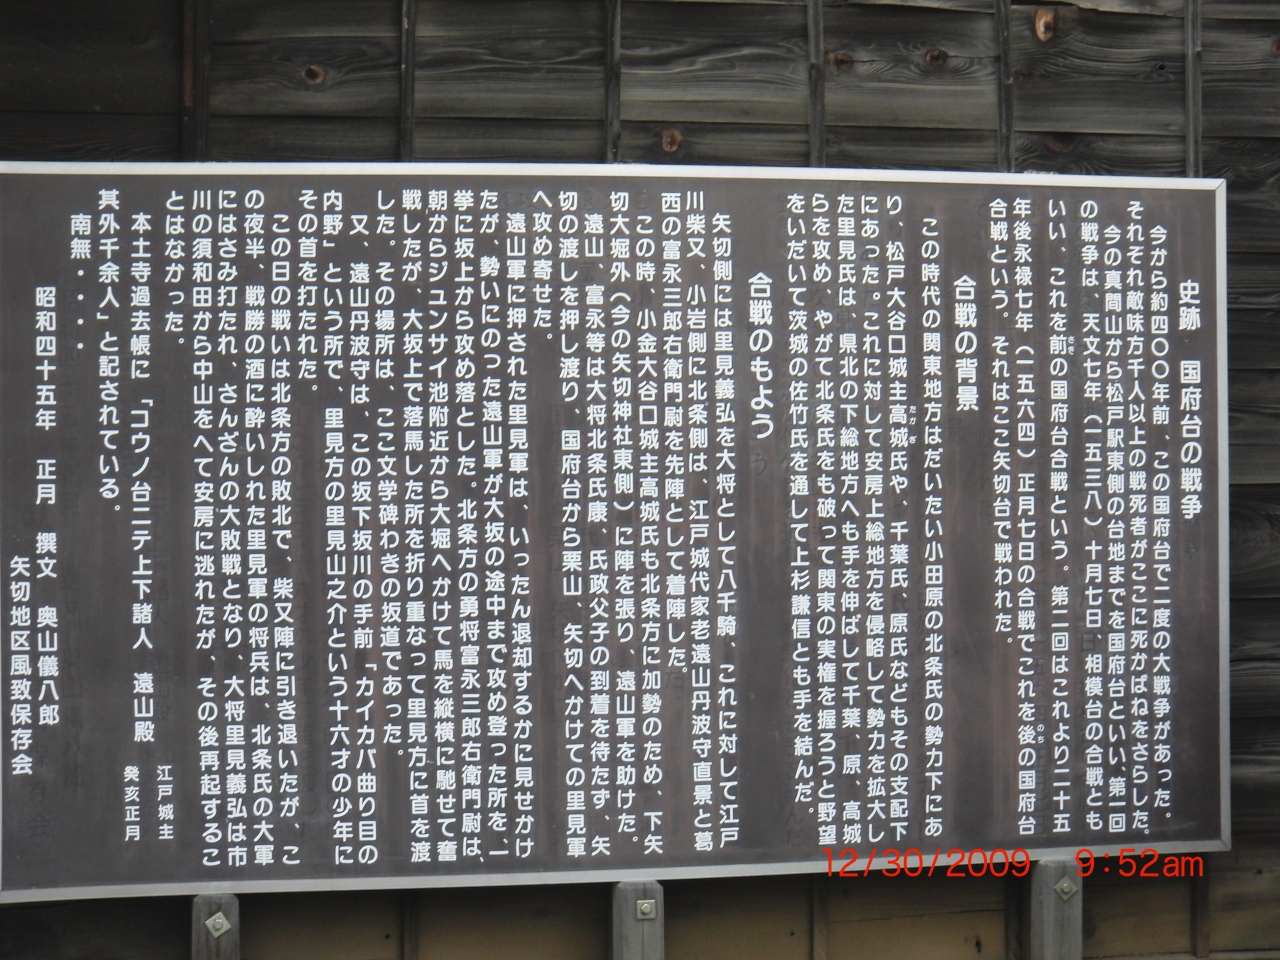 史跡　国府台の戦争
今から約四〇〇年前、この国府台で二度の大戦争があった。
それぞれ敵味方千人以上の戦死者がここに死かばねをさらした。
今の真間山から松戸駅東側の台地までを国府台といい、第一回
の戦争は、天文七年（一五三八）十月七日、相模台の合戦とも
いい、これを前の国府台合戦という。第二回はこれより二十五
さき
年後永禄七年（一五六四）正月七日の合戦でこれを後の国府台
のち
合戦という。それはここ矢切台で戦われた。
合戦の背景
この時代の関東地方はだいたい小田原の北条氏の勢力下にあ
り、松戸大谷口城主高城氏や、千葉氏、原氏などもその支配下
たかぎ
にあった。これに対して安房上総地方を侵略して勢力を拡大し
た里見氏は、県北の下総地方へも手を伸ばして千葉、原、高城
らを攻め、やがて北条氏をも破って関東の実権を握ろうと野望
をいだいて茨城の佐竹氏を通して上杉謙信とも手を結んだ。
合戦のもよう
矢切側には里見義弘を大将として八千騎、これに対して江戸
川柴又、小岩側に北条側は、江戸城代家老遠山丹波守直景と葛
西の富永三郎右衛門尉を先陣として着陣した。
この時、小金大谷口城主高城氏も北条方に加勢のため、下矢
切大堀外（今の矢切神社東側）に陣を張り、遠山軍を助けた。
遠山、富永等は大将北条氏康、氏政父子の到着を待たず、矢
切の渡しを押し渡り、国府台から栗山、矢切へかけての里見軍
へ攻め寄せた。
遠山軍に押された里見軍は、いったん退却するかに見せかけ
たが、勢いにのった遠山軍が大坂の途中まで攻め登った所を、一
挙に坂上から攻め落とした。北条方の勇将富永三郎右衛門尉は、
朝からジュンサイ池附近から大堀へかけて馬を縦横に馳せて奮
戦したが、大坂上で落馬した所を折り重なって里見方に首を渡
した。その場所は、ここ文学碑わきの坂道であった。
又、遠山丹波守は、この坂下坂川の手前「カイカバ曲り目の
内野」という所で、里見方の里見山之介という十六才の少年に
その首を打たれた。
この日の戦いは北条方の敗北で、柴又陣に引き退いたが、こ
の夜半、戦勝の酒に酔いしれた里見軍の将兵は、北条氏の大軍
にはさみ打たれ、さんざんの大敗戦となり、大将里見義弘は市
川の須和田から中山をへて安房に逃れたが、その後再起するこ
とはなかった。
本土寺過去帳に「コウノ台ニテ上下諸人　遠山殿　江戸城主
癸亥正月
其外千余人」と記されている。
南無・・・・
昭和四十五年　正月　撰文　奥山儀八郎
矢切地区風致保存会
12/30/2009 9:52am